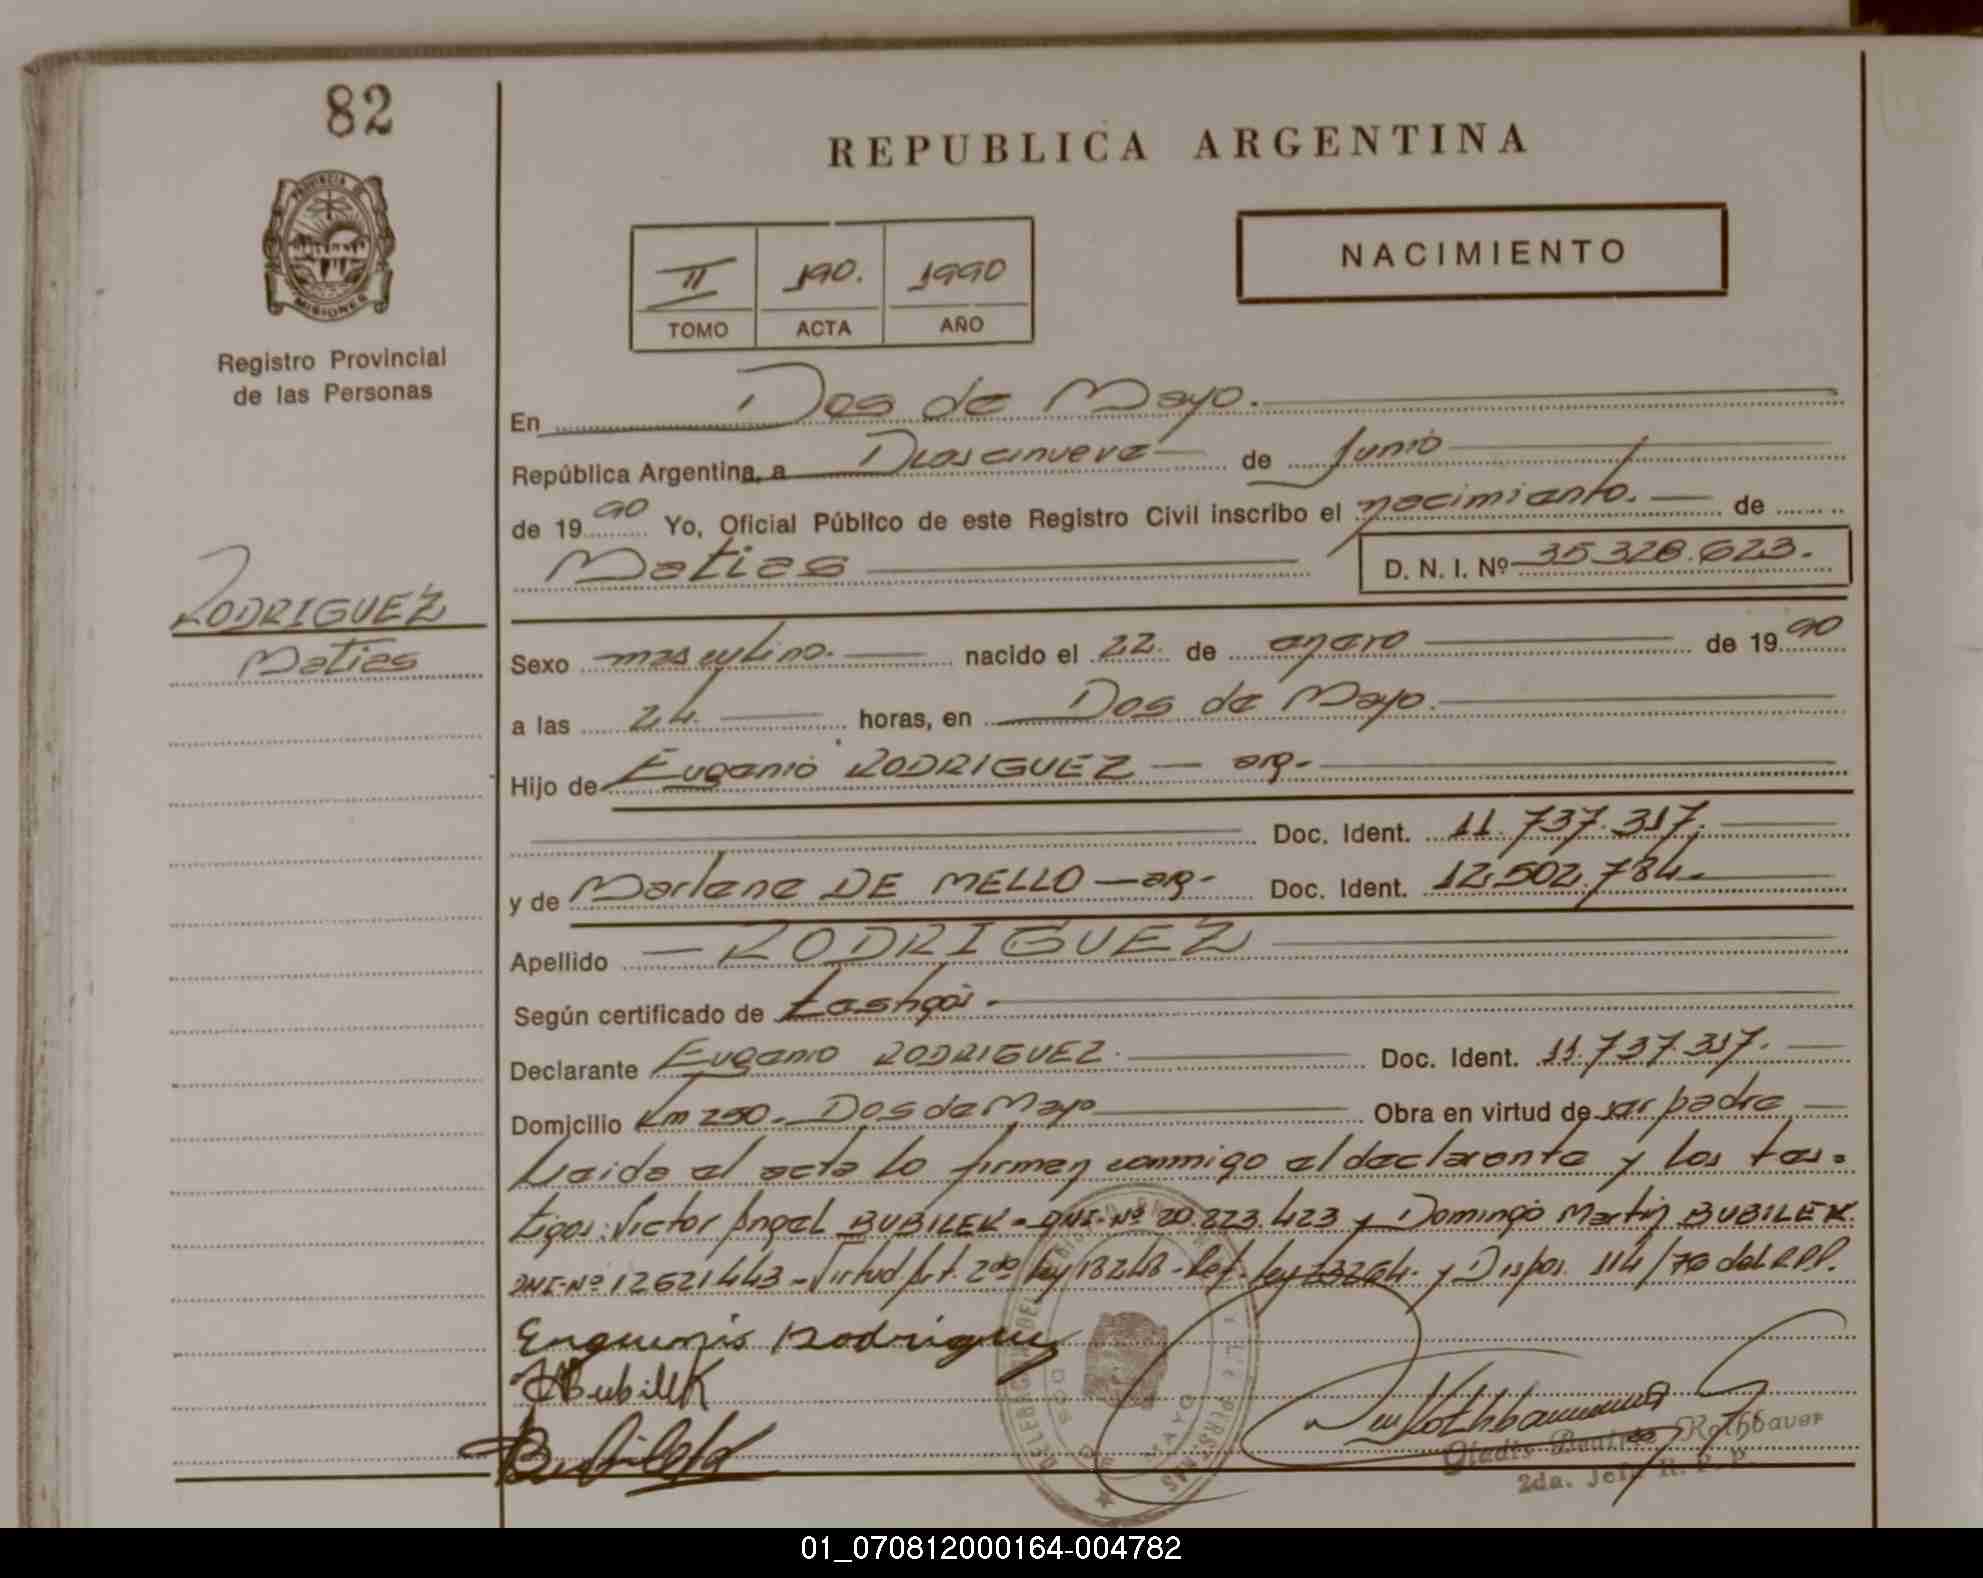 82
REPUBLICA ARGENTINA
PROVINCIA DE
MISIONES
NACIMIENTO
II 190. 1990
TOMO ACTA AÑO
Registro Provincial
de las Personas
En Dos de Mayo.
República Argentina, a Diescinueve de Junio
de 1990 Yo, Oficial Público de este Registro Civil inscribo el nacimiento. de
Matias D. N. I. Nº 35.328.623.
RODRIGUEZ
Matias
Sexo masculino. nacido el 22. de enero de 1990
a las 24. horas, en Dos de Mayo.
Hijo de Eugenio RODRIGUEZ — arg.
Doc. Ident. 11.737.317.
y de Marlene DE MELLO — arg. Doc. Ident. 12.502.784.
Apellido RODRIGUEZ
Según certificado de testigos.
Declarante Eugenio RODRIGUEZ. Doc. Ident. 11.737.317.
Domicilio Km 250. Dos de Mayo Obra en virtud de ser padre
Leida el acta lo firman conmigo el declarante y los tes=
tigos: Victor Angel BUBILEK - DNI-Nº 20.223.423 y Domingo Martin BUBILEK.
DNI-Nº 12621443 - Virtud Art. 2do Ley 18248 - Ref. Ley 23264. y Dispos. 114/70 del RPP.
Rodriguez
Bubilek
Gladis Beatriz Rothbauer
2da. Jefa R. P. P.
01_070812000164-004782